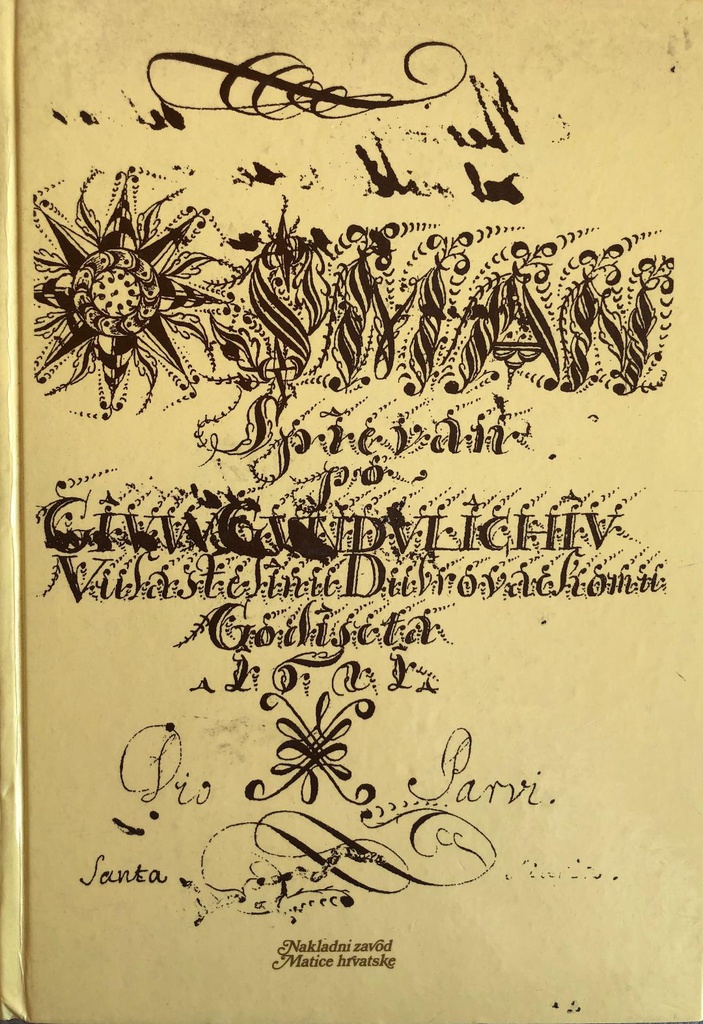 OSMAN
Spievan
po
GIVVV GVNDVLICHIV
Vulastelinu Dubrovackomu
Godiscta
Dio Parvi.
Santa
Nakladni zavod
Matice hrvatske